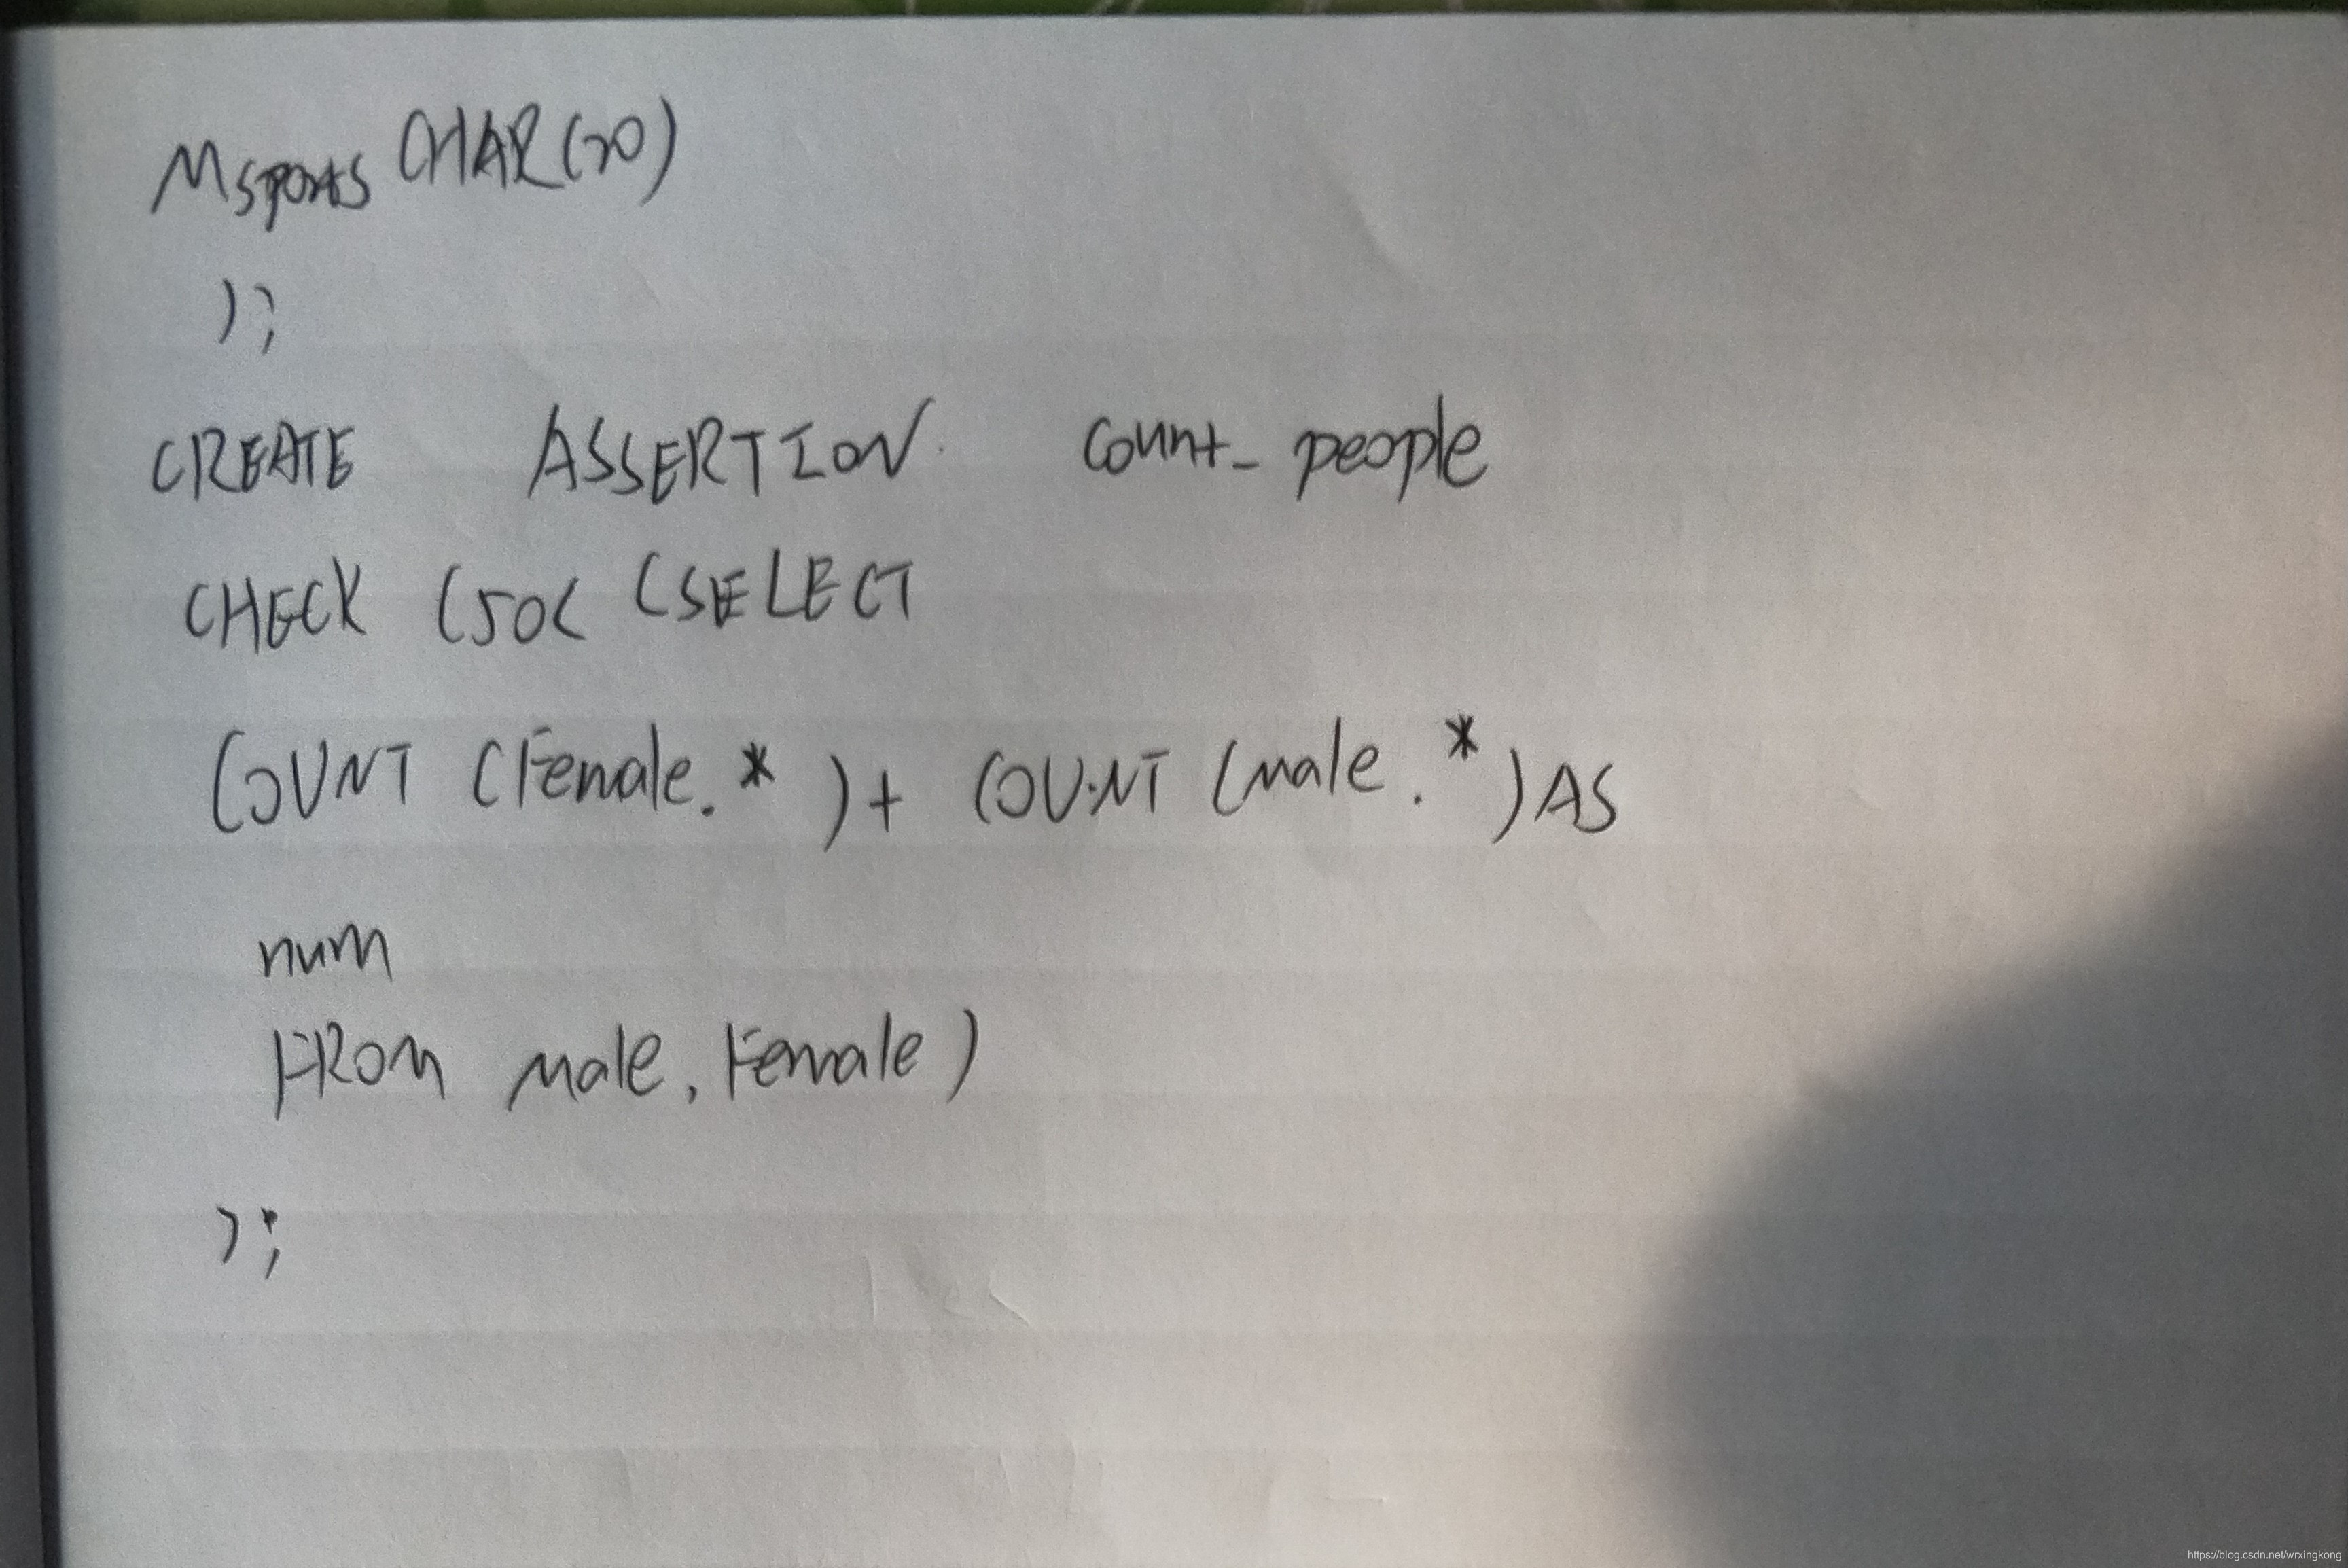 Msports CHAR(20)
);
CREATE ASSERTION count_people
CHECK (50< (SELECT
COUNT (Female.*)+ COUNT (male.*)AS
num
FROM male, Female)
);
https://blog.csdn.net/wrxingkong